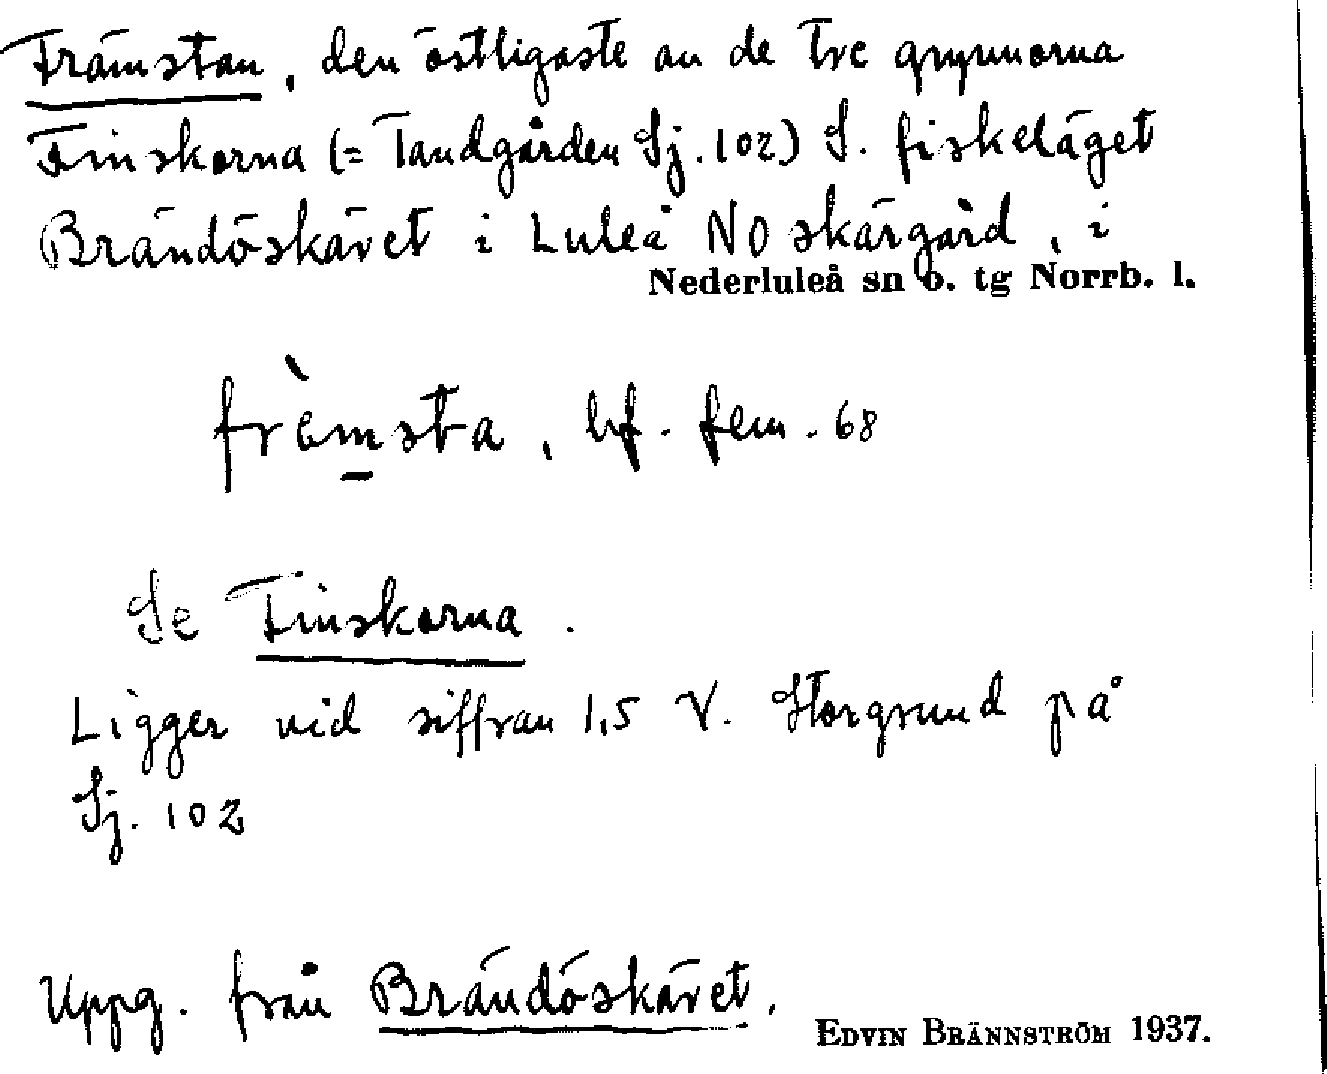 Främstan, den östligaste av de tre grynnorna
Finskorna (= Tandgården Sj. 102) S. fiskeläget
Brändöskäret i Luleå NO skärgård, i
Nederluleå sn o. tg Norrb. l.
frèmsta, bf. fem. 68
Se Finskorna.
Ligger vid siffran 1,5 V. Storgrund på
Sj. 102
Uppg. från Brändöskäret.
EDVIN BRÄNNSTRÖM 1937.